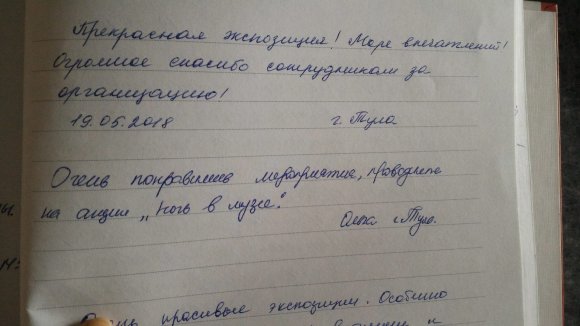 Прекрасная экспозиция! Море впечатлений!
Огромное спасибо сотрудникам за
организацию!
19.05.2018 г. Тула
Очень понравились мероприятия, проводимые
на акции „Ночь в музее".
Ольга г. Тула.
Очень красивые экспозиции. Особенно